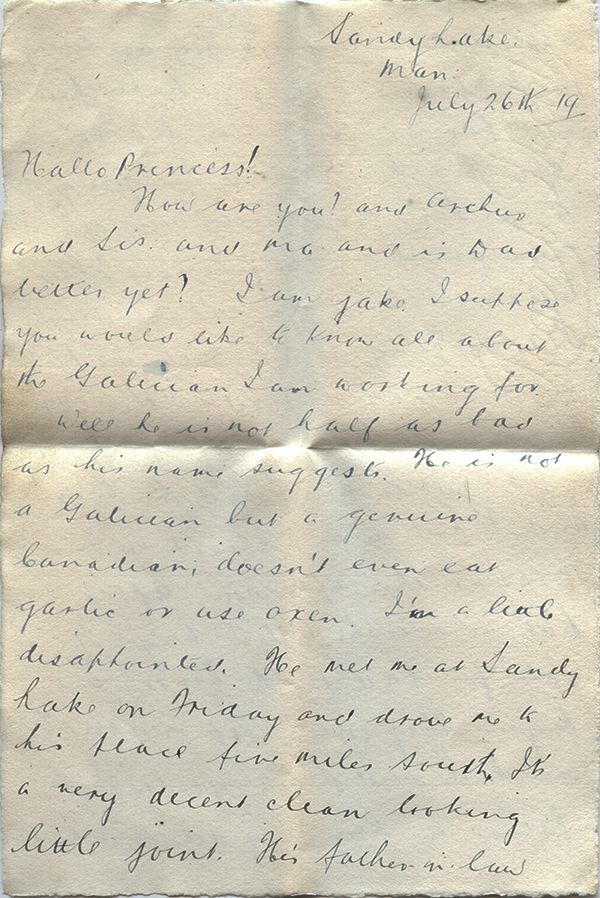 Sandy Lake.
Man.
July 26th 19
Hallo Princess!
How are you? and Archie
and Sis. and Ma and is Dad
better yet? I am jake. I suppose
you would like to know all about
the Galician I am working for.
Well he is not half as bad
as his name suggests. He is not
a Galician but a genuine
Canadian, doesn't even eat
garlic or use oxen. I'm a little
disappointed. He met me at Sandy
Lake on Friday and drove me to
his place five miles south. It's
a very decent clean looking
little joint. His father-in-law